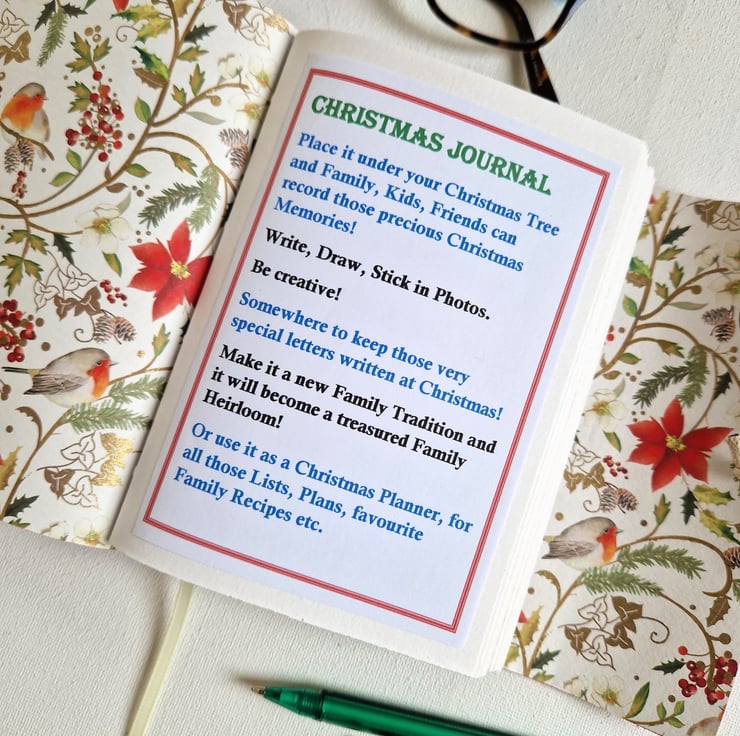 CHRISTMAS JOURNAL
Place it under your Christmas Tree
and Family, Kids, Friends can
record those precious Christmas
Memories!
Write, Draw, Stick in Photos.
Be creative!
Somewhere to keep those very
special letters written at Christmas!
Make it a new Family Tradition and
it will become a treasured Family
Heirloom!
Or use it as a Christmas Planner, for
all those Lists, Plans, favourite
Family Recipes etc.